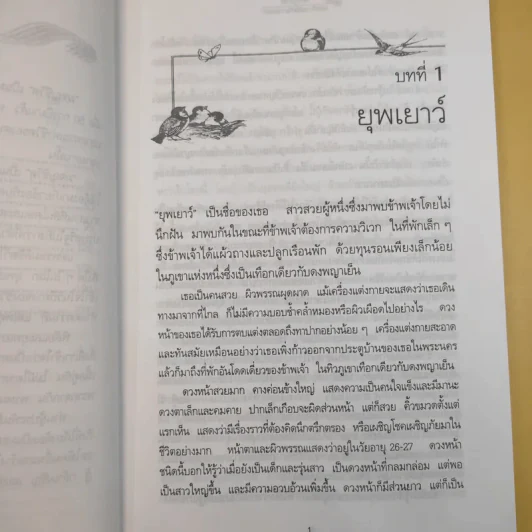 บทที่ 1
ยุพเยาว์
"ยุพเยาว์" เป็นชื่อของเธอ สาวสวยผู้หนึ่งซึ่งมาพบข้าพเจ้าโดยไม่
นึกฝัน มาพบกันในขณะที่ข้าพเจ้าต้องการความวิเวก ในที่พักเล็ก ๆ
ซึ่งข้าพเจ้าได้แผ้วถางและปลูกเรือนพัก ด้วยทุนรอนเพียงเล็กน้อย
ในภูเขาแห่งหนึ่งซึ่งเป็นเทือกเดียวกับดงพญาเย็น
เธอเป็นคนสวย ผิวพรรณผุดผาด แม้เครื่องแต่งกายจะแสดงว่าเธอเดิน
ทางมาจากที่ไกล ก็ไม่มีความบอบช้ำคล้ำหมองหรือผิวเผือดไปอย่างไร ดวง
หน้าของเธอได้รับการตบแต่งตลอดถึงทาปากอย่างน้อย ๆ เครื่องแต่งกายสะอาด
และทันสมัยเหมือนอย่างว่าเธอเพิ่งก้าวออกจากประตูบ้านของเธอในพระนคร
แล้วก็มาถึงที่พักอันโดดเดี่ยวของข้าพเจ้า ในทิวภูเขาเทือกเดียวกับดงพญาเย็น
ดวงหน้าสวยมาก คางค่อนข้างใหญ่ แสดงความเป็นคนใจแข็งและมีมานะ
ดวงตาเล็กและคมคาย ปากเล็กเกือบจะผิดส่วนหน้า แต่ก็สวย คิ้วขมวดตั้งแต่
แรกเห็น แสดงว่ามีเรื่องราวที่ต้องคิดนึกตรึกตรอง หรือเผชิญโชคเผชิญภัยมาใน
ชีวิตอย่างมาก หน้าตาและผิวพรรณแสดงว่าอยู่ในวัยอายุ 26-27 ดวงหน้า
ชนิดนี้บอกให้รู้ว่าเมื่อยังเป็นเด็กและรุ่นสาว เป็นดวงหน้าที่กลมกล่อม แต่พอ
เป็นสาวใหญ่ขึ้น และมีความอวบอ้วนเพิ่มขึ้น ดวงหน้าก็มีส่วนยาว แต่ก็เป็น